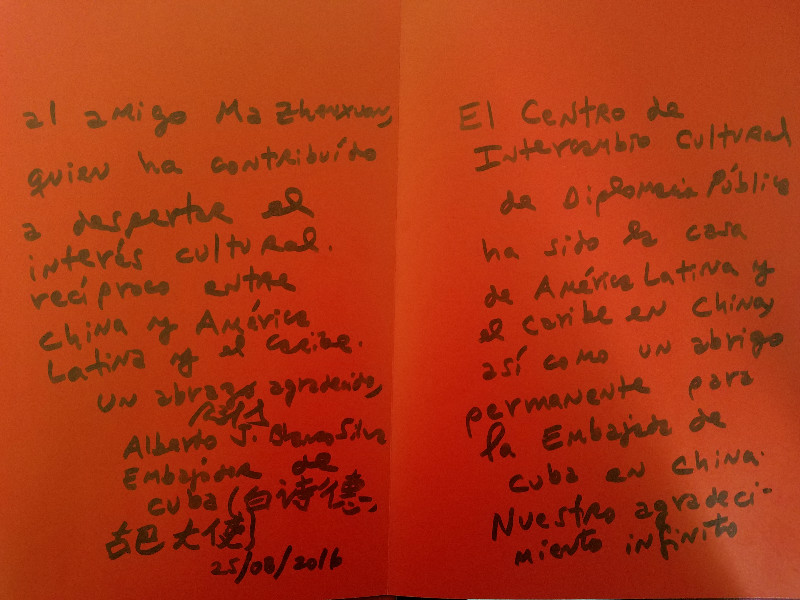 al amigo Ma Zhenxuan,
quien ha contribuído
a despertar el
interés cultural.
recíproco entre
China y América
Latina y el Caribe.
un abrazo agradecido,
Alberto J. Blanco Silva
Embajador de
Cuba (白诗德,
古巴大使)
25/08/2016
El Centro de
Intercambio Cultural
de Diplomacia Pública
ha sido la casa
de América Latina y
el Caribe en China,
así como un abrigo
permanente para
la Embajada de
Cuba en China.
Nuestro agradeci-
miento infinito